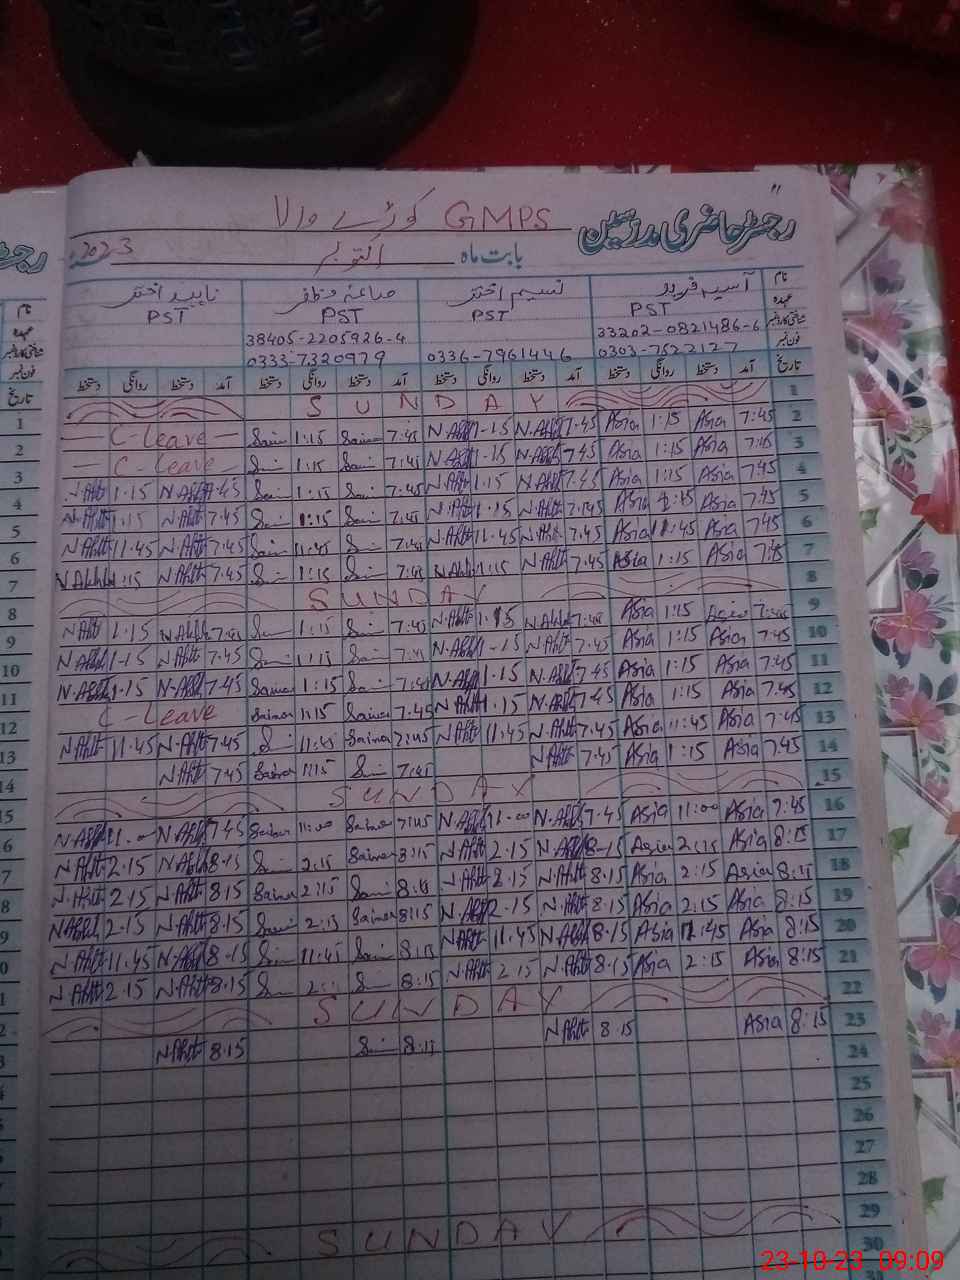 GMPS کوڑے والا
رجسٹر حاضری مدرسین
بابت ماہ اکتوبر 2023
نام آسیہ فرید نسیم اختر صائمہ مظفر ناہید اختر
عہدہ PST PST PST PST
شناختی کارڈ نمبر 33202-0821486-6 38405-2205926-4
فون نمبر 0303-7522127 0336-7961446 0333-7320979
تاریخ آمد دستخط روانگی دستخط آمد دستخط روانگی دستخط آمد دستخط روانگی دستخط آمد دستخط روانگی دستخط
1 SUNDAY
C-Leave Saim 1:15 Saima 7:45 N.Akht 1-15 N.Akht 7.45 Asia 1:15 Asia 7:45 2
C-Leave Sai 1:15 Sai 7:45 N.Akht 1-15 N.Akht 7.45 Asia 1:15 Asia 7:45 3
N.Akht 1.15 N.Akht 7.45 Sai 1:15 Sai 7:45 N.Akht 1.15 N.Akht 7.45 Asia 1:15 Asia 7:45 4
N.Akht 1.15 N.Akht 7.45 Sai 1:15 Sai 7:45 N.Akht 1.15 N.Akht 7.45 Asia 1:15 Asia 7:45 5
N.Akht 11.45 N.Akht 7.45 Sai 11:45 Sai 7:45 N.Akht 11.45 N.Akht 7.45 Asia 11:45 Asia 7:45 6
N.Akht 1:15 N.Akht 7.45 Sai 1:15 Sai 7:45 N.Akht 1:15 N.Akht 7.45 Asia 1:15 Asia 7:45 7
SUNDAY 8
N.Akht 1.15 N.Akht 7.45 Sai 1:15 Sai 7:45 N.Akht 1.15 N.Akht 7.45 Asia 1:15 Asia 7:45 9
N.Akht 1-15 N.Akht 7.45 Sai 1:15 Sai 7:45 N.Akht 1-15 N.Akht 7.45 Asia 1:15 Asia 7:45 10
N.Akht 1.15 N.Akht 7.45 Saima 1:15 Sai 7:45 N.Akht 1.15 N.Akht 7.45 Asia 1:15 Asia 7:45 11
C-Leave Saima 1:15 Saima 7:45 N.Akht 1.15 N.Akht 7.45 Asia 1:15 Asia 7.45 12
N.Akht 11.45 N.Akht 7.45 Sai 11:45 Saima 7:45 N.Akht 11.45 N.Akht 7.45 Asia 11:45 Asia 7:45 13
N.Akht 7.45 Saima 1:15 Sai 7:45 N.Akht 7.45 Asia 1:15 Asia 7:45 14
SUNDAY 15
N.Akht 11.00 N.Akht 7.45 Saima 11:00 Saima 7:45 N.Akht 11-00 N.Akht 7.45 Asia 11:00 Asia 7:45 16
N.Akht 2.15 N.Akht 8.15 Sai 2:15 Saima 8:15 N.Akht 2.15 N.Akht 8-15 Asia 2:15 Asia 8:15 17
N.Akht 2.15 N.Akht 8.15 Saima 2:15 Sai 8:15 N.Akht 2.15 N.Akht 8.15 Asia 2:15 Asia 8:15 18
N.Akht 2.15 N.Akht 8.15 Sai 2:15 Saima 8:15 N.Akht 2.15 N.Akht 8.15 Asia 2:15 Asia 8:15 19
N.Akht 11.45 N.Akht 8.15 Sai 11:45 Sai 8:15 N.Akht 11.45 N.Akht 8.15 Asia 11:45 Asia 8:15 20
N.Akht 2.15 N.Akht 8.15 Sai 8:15 N.Akht 2.15 N.Akht 8.15 Asia 2:15 Asia 8:15 21
SUNDAY 22
N.Akht 8.15 Sai 8:15 N.Akht 8.15 Asia 8:15 23
24
25
26
27
28
SUNDAY 29
30
31
23-10-23 09:09